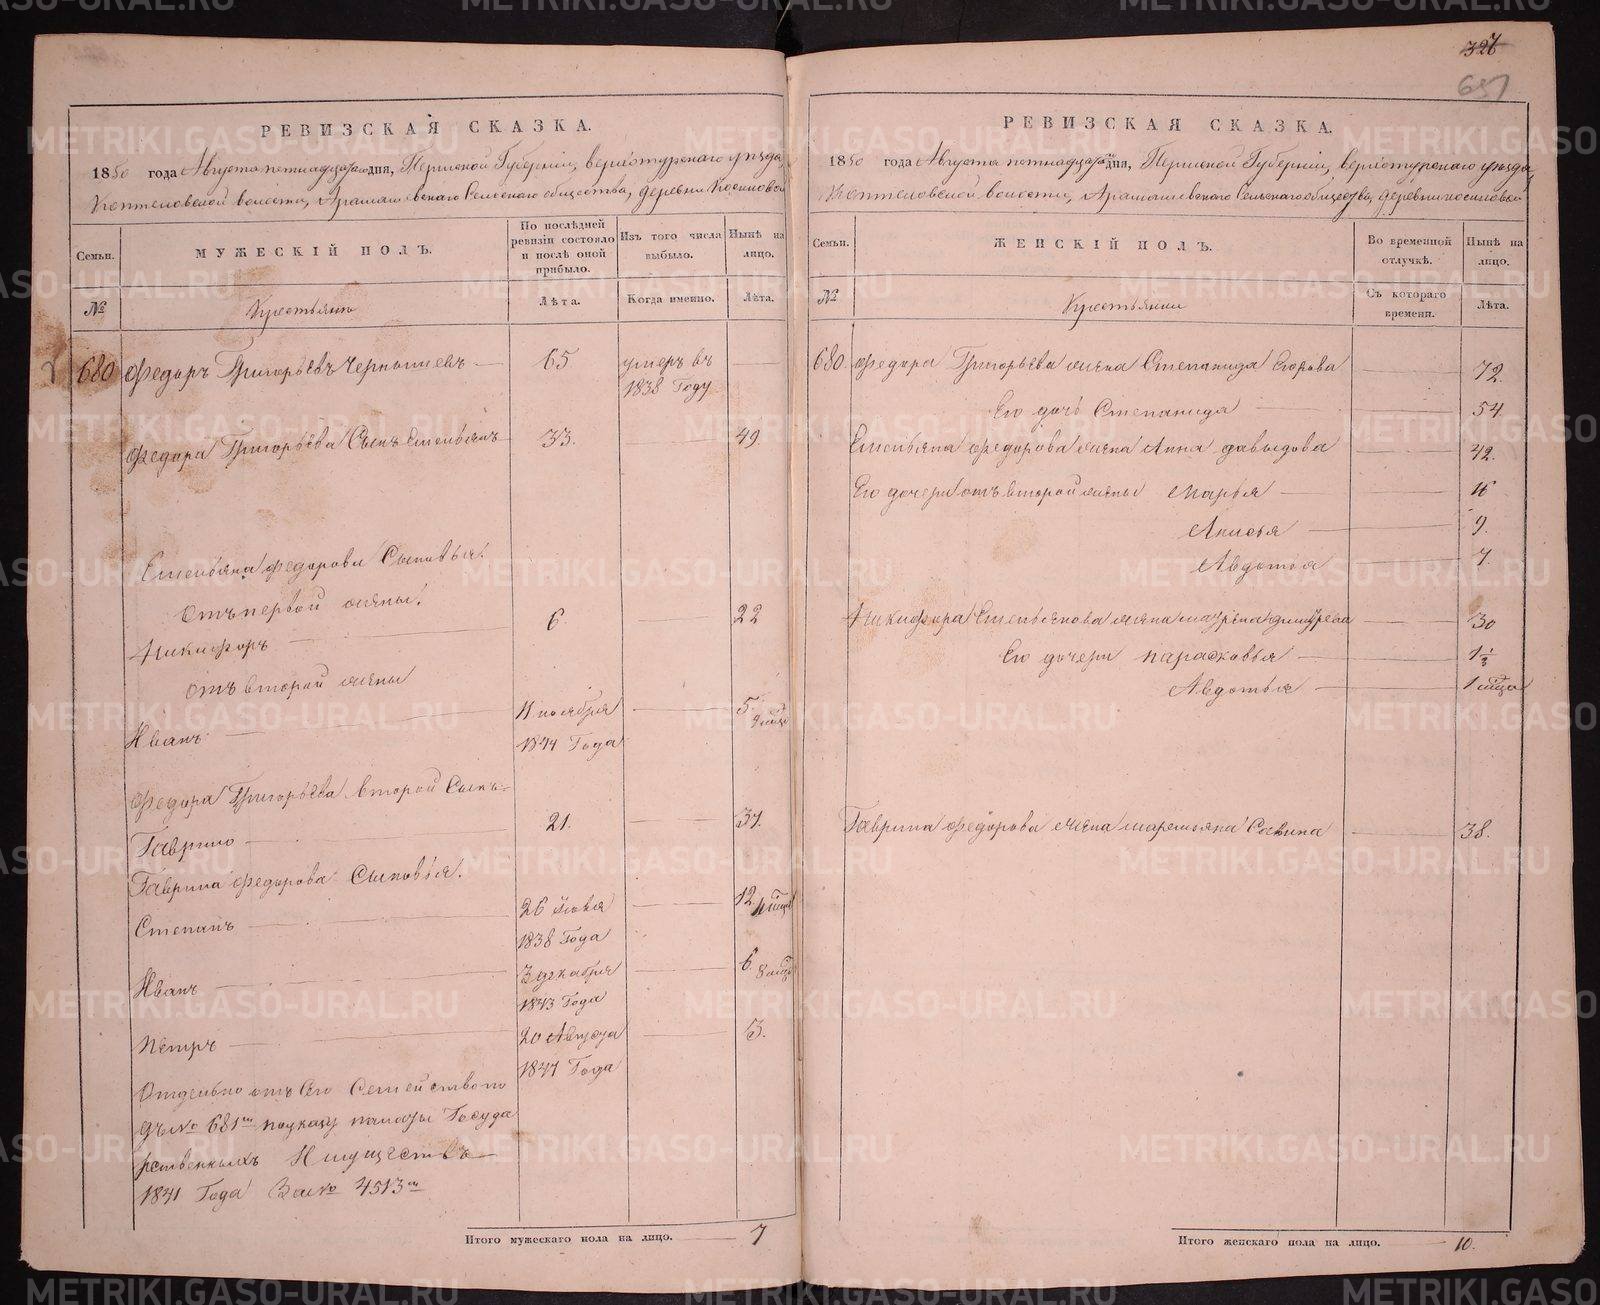 327
651
РЕВИЗСКАЯ СКАЗКА.
1850 года Августа пятнадцатого дня, Пермской Губерніи, верхотурскаго уѣзда
Коптеловской волости, Арамашевскаго Сельскаго общества, деревни Косиковой
Семьи.
МУЖЕСКІЙ ПОЛЪ.
По послѣдней ревизіи состояло и послѣ оной прибыло.
Изъ того числа выбыло.
Нынѣ на лицо.
№
Крестьяне
Лѣта.
Когда именно.
Лѣта.
680 Федоръ Григорьевъ Чернышевъ 65 умеръ въ
1838 Году
Федора Григорьева Сынъ Емельянъ 33. 49.
Емельяна Федорова Сыновья.
Отъ первой жены.
Никифоръ 6. 22
отъ второй жены
Иванъ 11 ноября 5. 9 мцъ
1844 Года
Федора Григорьева второй Сынъ
Гаврило 21. 37.
Гаврила Федорова Сыновья.
Степанъ 26 Іюля 12.
1838 Года
Иванъ 3 декабря 6. 8 мцъ
1843 Года
Петръ 20 Августа 3.
1847 Года
Отдельно отъ Его Семейство по
дъ № 681м по указу палаты Госуда
рственныхъ Имуществъ
1841 Года За № 4513м
Итого мужескаго пола на лицо. 7
РЕВИЗСКАЯ СКАЗКА.
1850 года Августа пятнадцатого дня, Пермской Губерніи, верхотурскаго уѣзда,
Коптеловской волости, Арамашевскаго Сельскаго общества, деревни Косиковой
Семьи.
ЖЕНСКІЙ ПОЛЪ.
Во временной отлучкѣ.
Нынѣ на лицо.
№
Крестьянки
Съ котораго времени.
Лѣта.
680. Федора Григорьева жена Степанида Егорова 72.
Его дочь Степанида 54
Емельяна Федорова жена Анна Давыдова 42.
Его дочери отъ второй жены Марья 16
Анисья 9.
Авдотья 7.
Никифора Емельянова жена Маурѣна Дмитрева 30
Его дочери Парасковья 1½
Авдотья 1 мца
Гаврила Федорова жена Маремьяна Савина 38.
Итого женскаго пола на лицо. 10.
METRIKI.GASO-URAL.RU